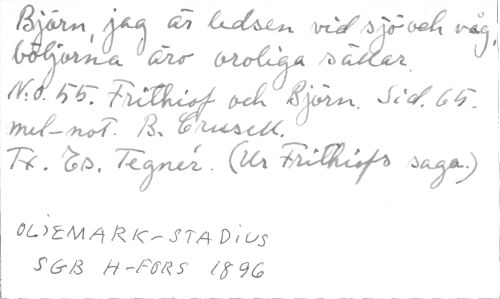 Björn, jag är ledsen vid sjö och våg,
böljorna äro oroliga sällar.
N:o. 55. Frithiof och Björn. Sid. 65.
mel-not. B. Crusell.
Tx. Es. Tegnér. (Ur Frithiofs saga.)
OLJEMARK-STADIUS
SGB H-FORS 1896